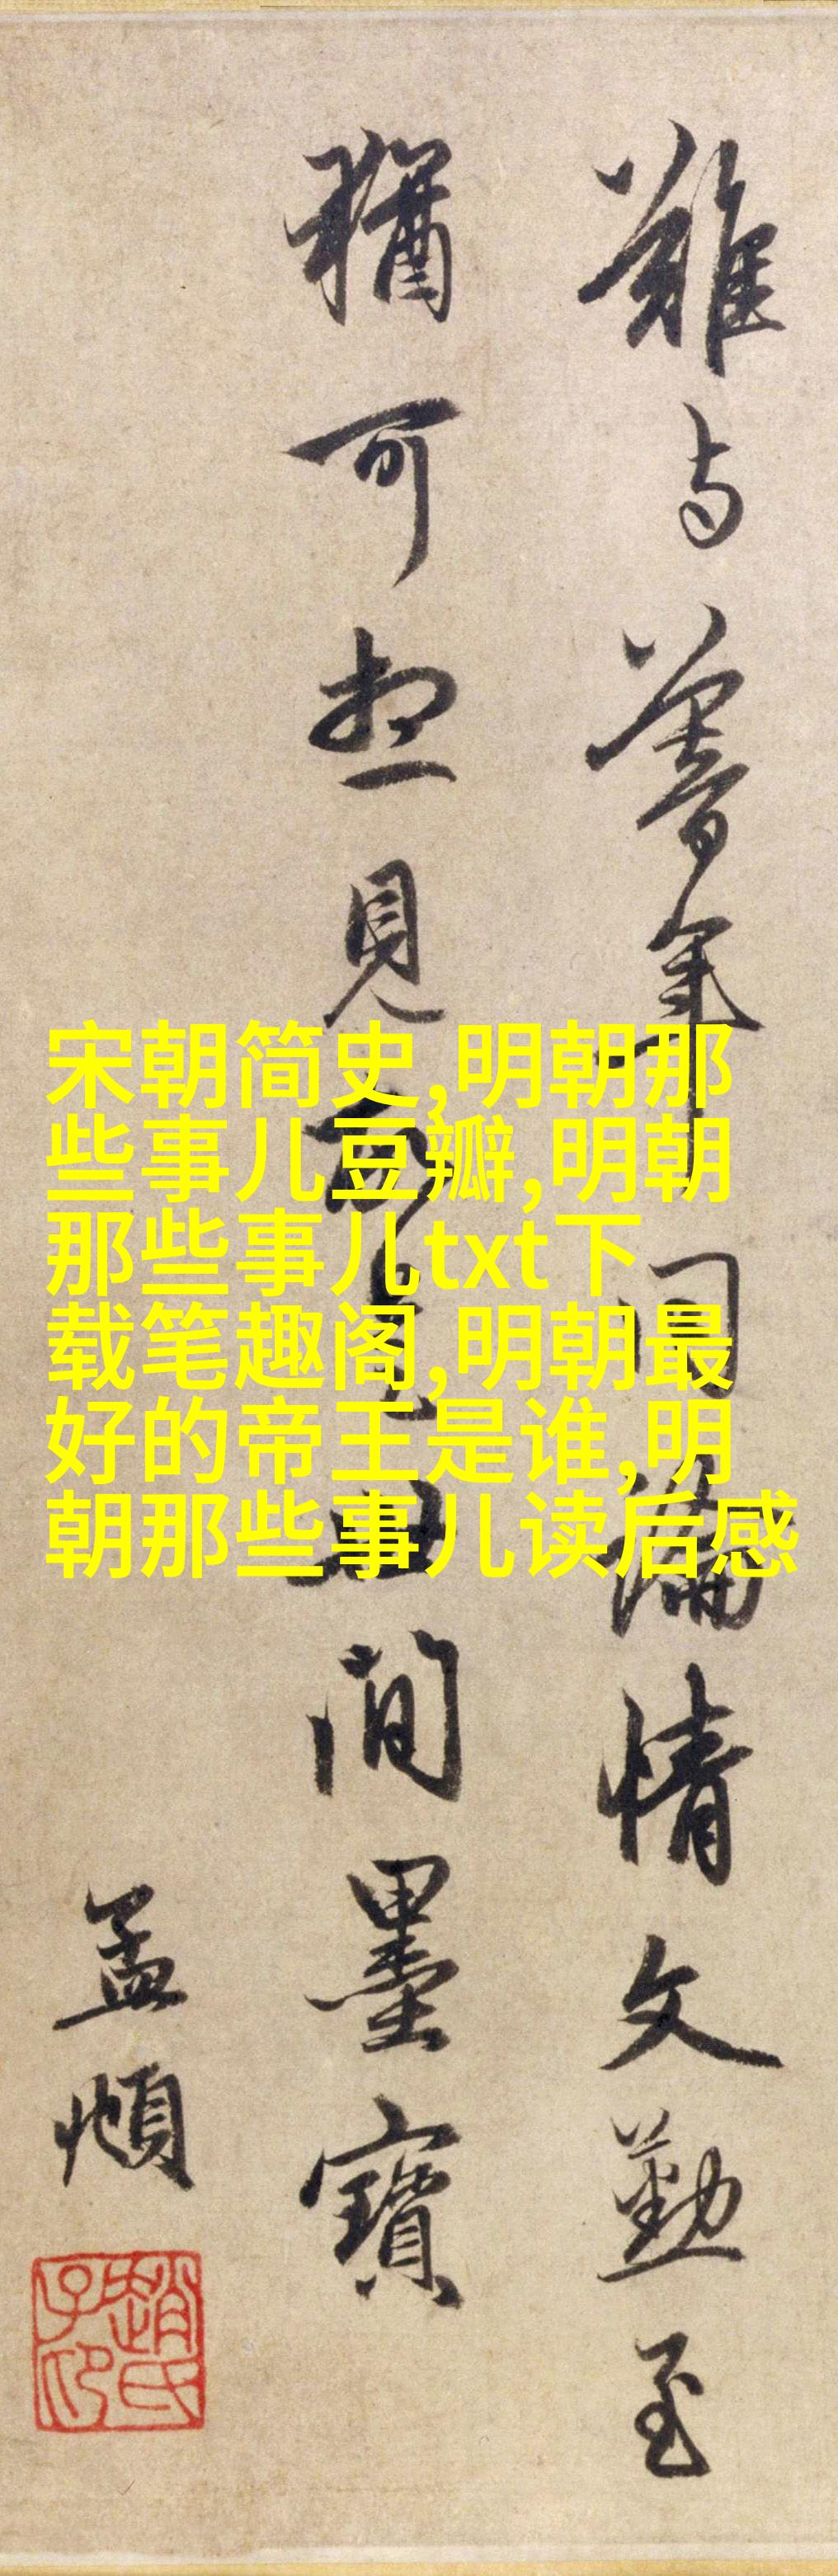 難与莫年同論情文勤至
猶可想見於也
間墨寶
孟頫
趙氏子印
宋朝简史,明朝那
些事儿豆瓣,明朝
那些事儿txt下
载笔趣阁,明朝最
好的帝王是谁,明
朝那些事儿读后感